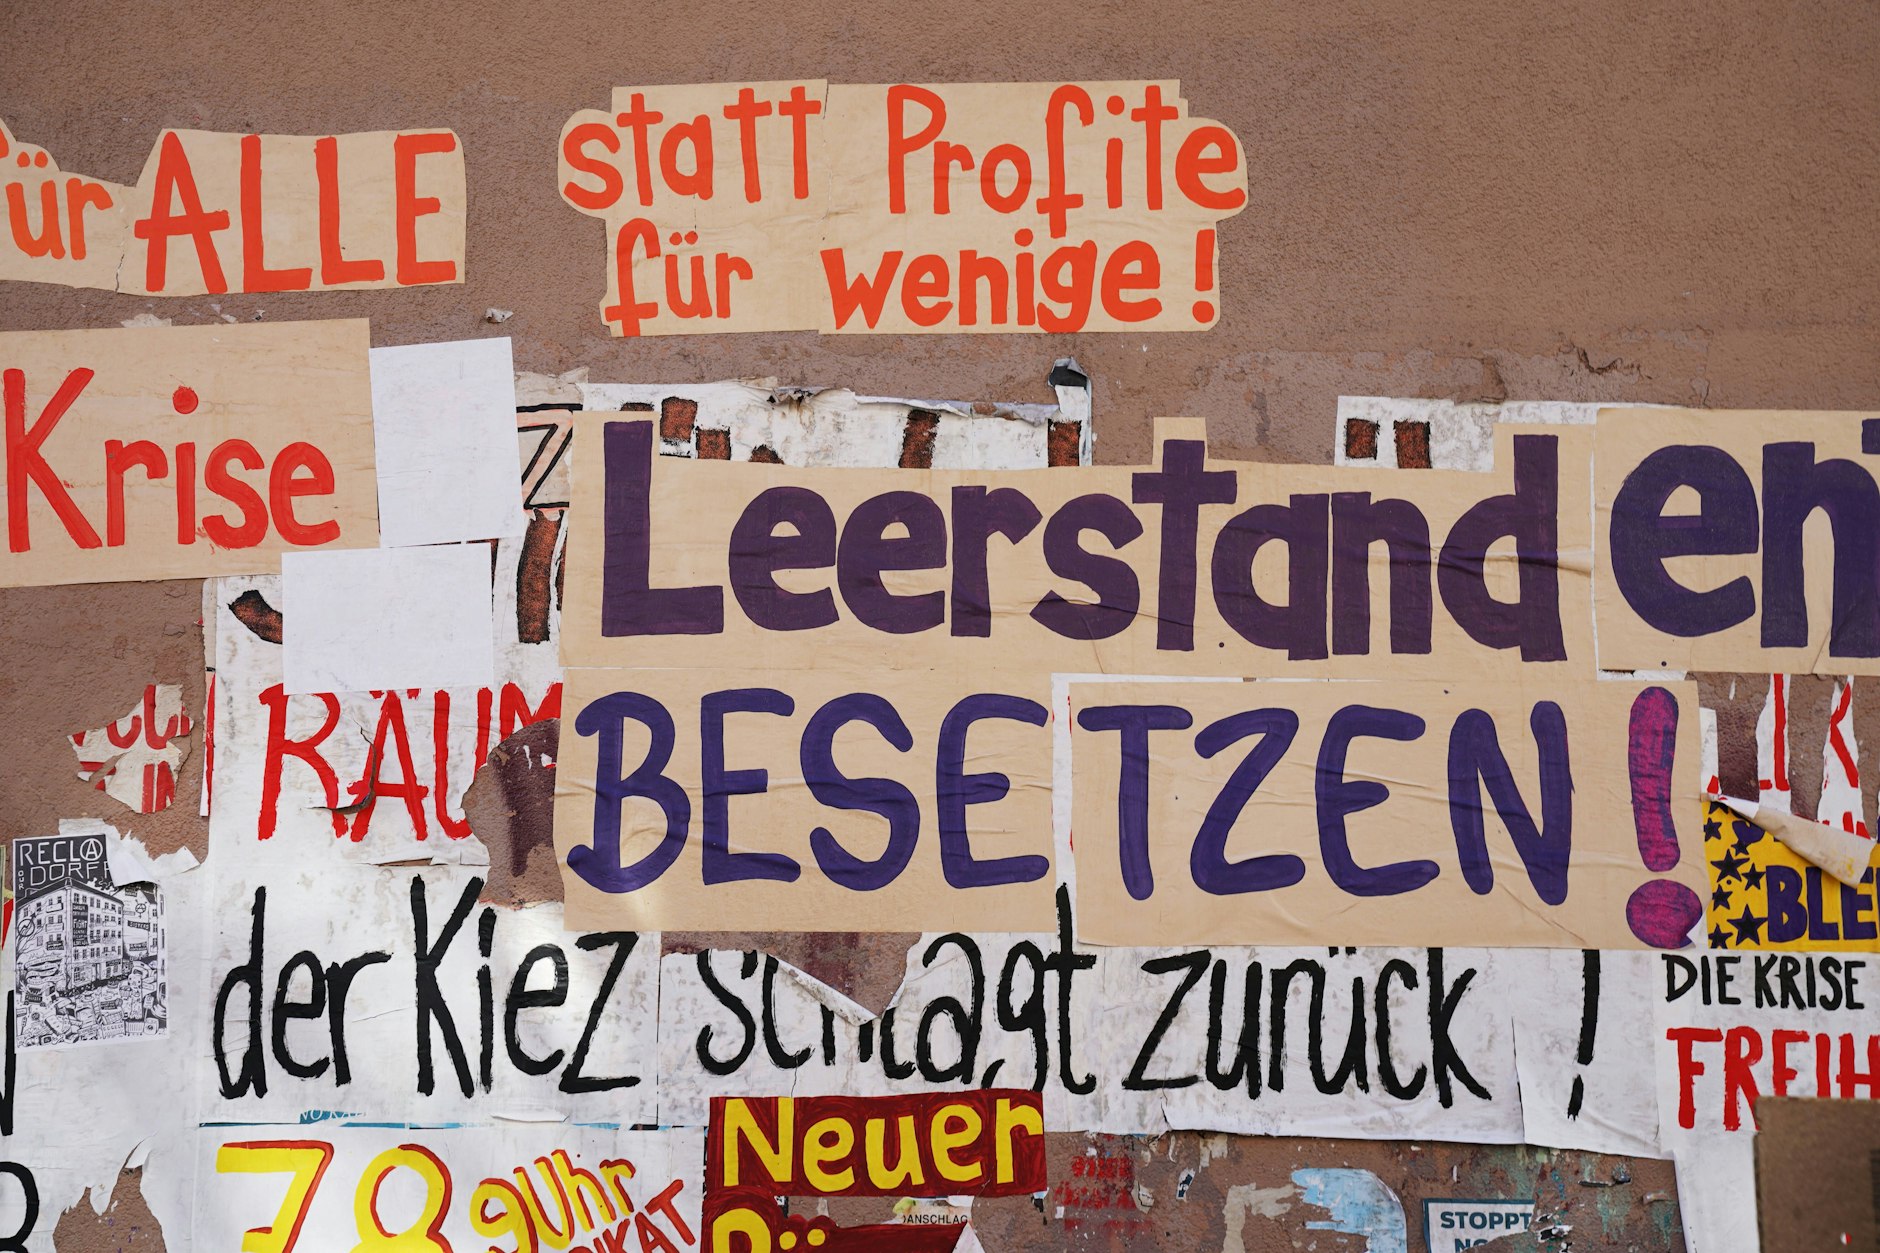 für ALLE
statt Profite
für wenige!
Krise
Leerstand en
BESETZEN!
RÄUM
RECLA
OUR
DORF
BLE
der Kiez schlagt zurück!
DIE KRISE
FREIH
Neuer
78
9Uhr
IKAT
ANSCHLAG
STOPPT